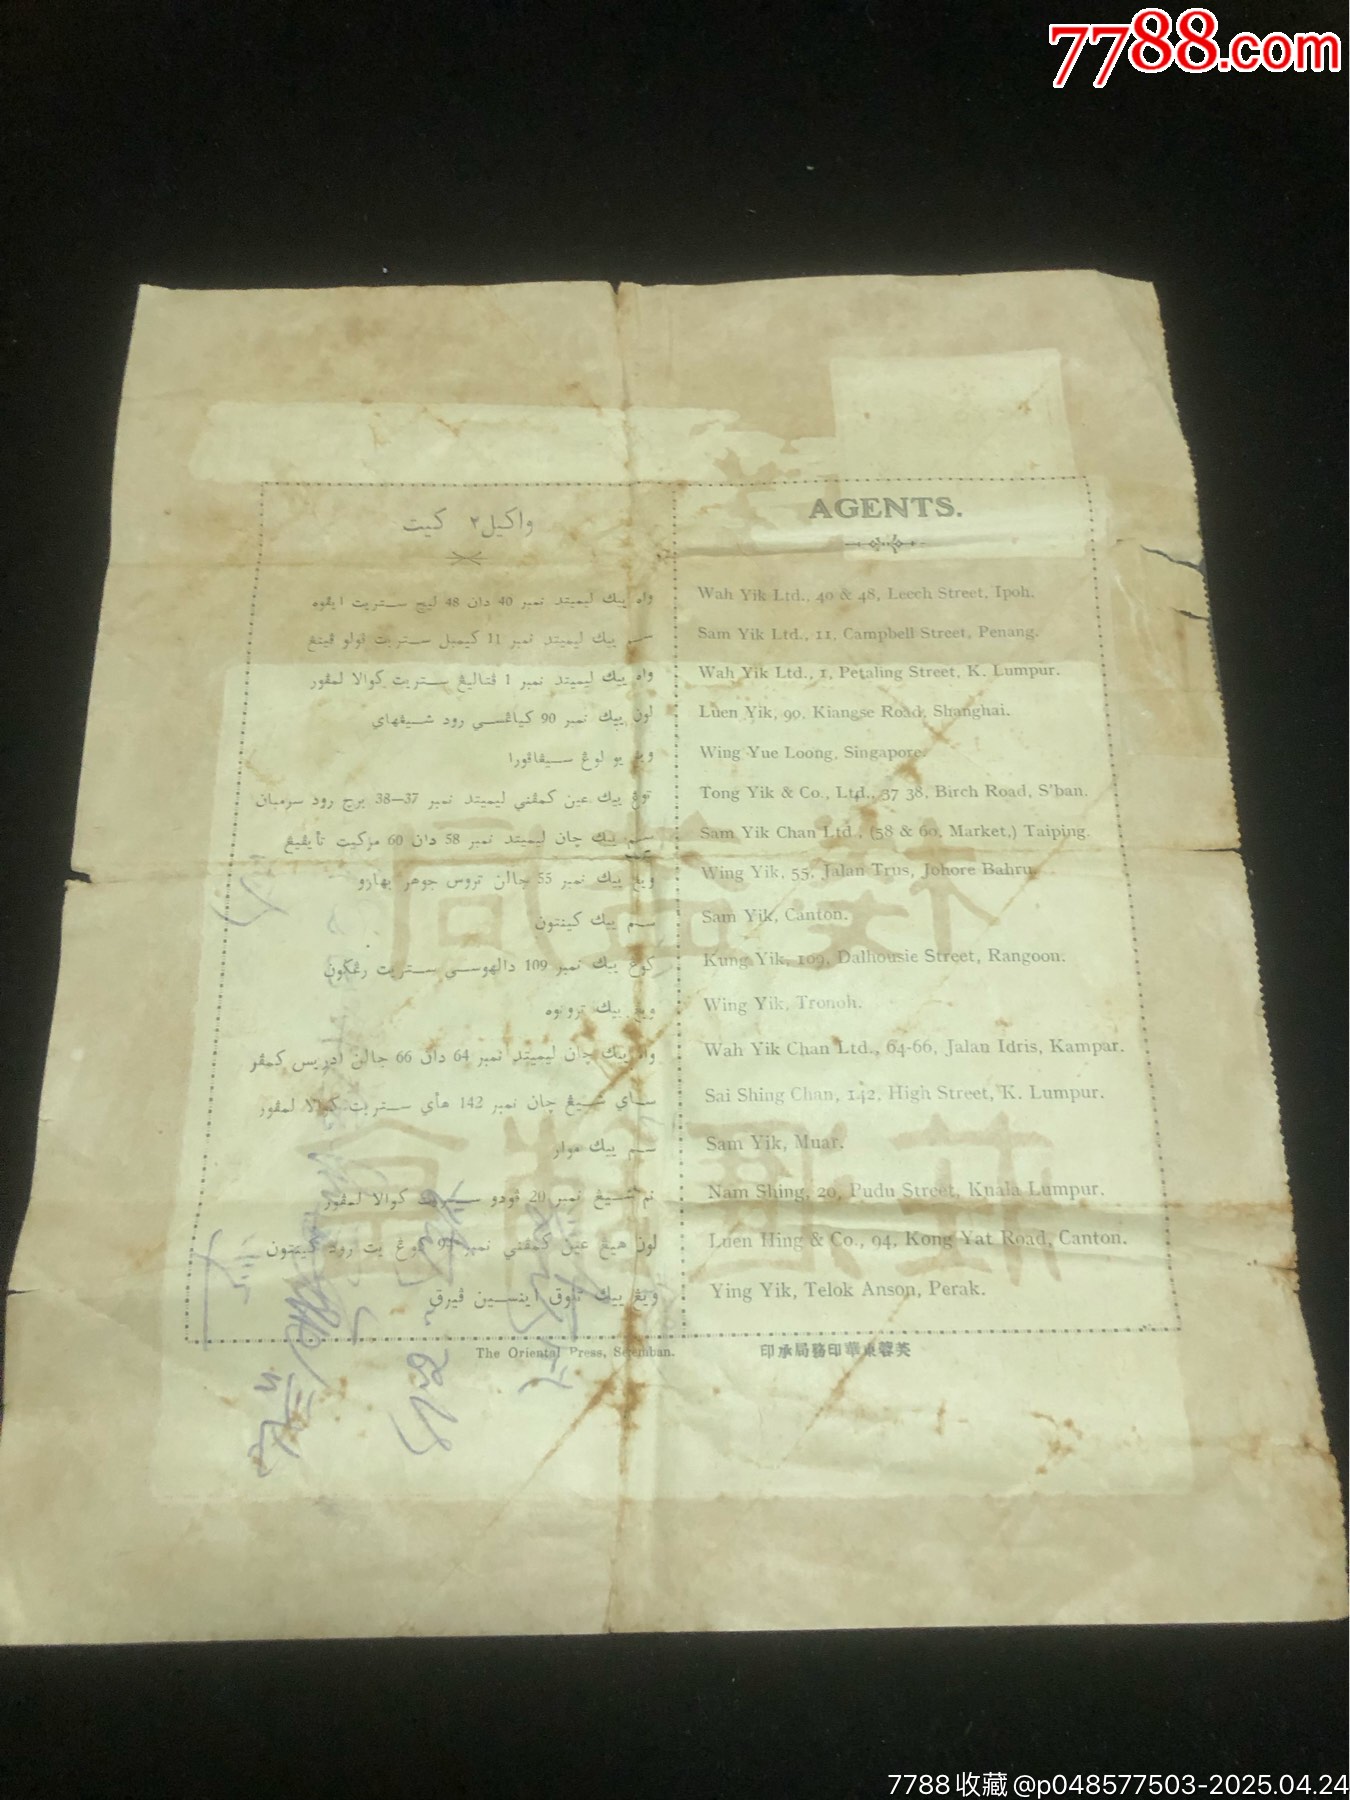 7788.com
AGENTS.
Wah Yik Ltd., 40 & 48, Leech Street, Ipoh.
Sam Yik Ltd., 11, Campbell Street, Penang.
Wah Yik Ltd., 1, Petaling Street, K. Lumpur.
Luen Yik, 90, Kiangse Road, Shanghai.
Wing Yue Loong, Singapore.
Tong Yik & Co., Ltd., 37 38, Birch Road, S'ban.
Sam Yik Chan Ltd., (58 & 60, Market,) Taiping.
Wing Yik, 55, Jalan Trus, Johore Bahru.
Sam Yik, Canton.
Kung Yik, 109, Dalhousie Street, Rangoon.
Wing Yik, Tronoh.
Wah Yik Chan Ltd., 64-66, Jalan Idris, Kampar.
Sai Shing Chan, 142, High Street, K. Lumpur.
Sam Yik, Muar.
Nam Shing, 20, Pudu Street, Kuala Lumpur.
Luen Hing & Co., 94, Kong Yat Road, Canton.
Ying Yik, Telok Anson, Perak.
واكيل٢ كيت
واه ييك ليميتد نمبر 40 دان 48 ليچ ستريت ايڤوه
سم ييك ليميتد نمبر 11 كيمبل ستريت ڤولو ڤينڠ
واه ييك ليميتد نمبر 1 ڤتاليڠ ستريت كوالا لمڤور
لون ييك نمبر 90 كياڠسي رود شيڠهاي
ويڠ يو لوڠ سيڠاڤورا
توڠ ييك عين كمڤني ليميتد نمبر 37—38 برچ رود سرمبان
سم ييك چان ليميتد نمبر 58 دان 60 مركيت تأيڤيڠ
ويڠ ييك نمبر 55 جالن تروس جوهر بهارو
سم ييك كينتون
كوڠ ييك نمبر 109 دالهوسي ستريت رڠكون
ويڠ ييك ترونوه
واه ييك چان ليميتد نمبر 64 دان 66 جالن ادريس كمڤر
ساي شيڠ چان نمبر 142 هاي ستريت كوالا لمڤور
سم ييك موار
نم شيڠ نمبر 20 ڤودو ستريت كوالا لمڤور
لون هيڠ عين كمڤني نمبر 94 كوڠ يت رود كينتون
ويڠ ييك تلوق اينسين ڤيرق
The Oriental Press, Seremban.
芙蓉東華印務局承印
7788收藏@p048577503-2025.04.24